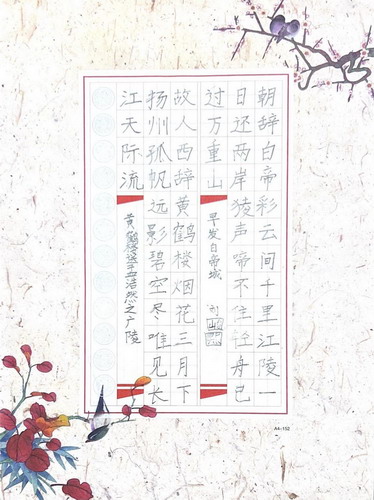 朝辞白帝彩云间千里江陵一
日还两岸猿声啼不住轻舟已
过万重山
早发白帝城
故人西辞黄鹤楼烟花三月下
扬州孤帆远影碧空尽唯见长
江天际流
黄鹤楼送孟浩然之广陵
A4-152